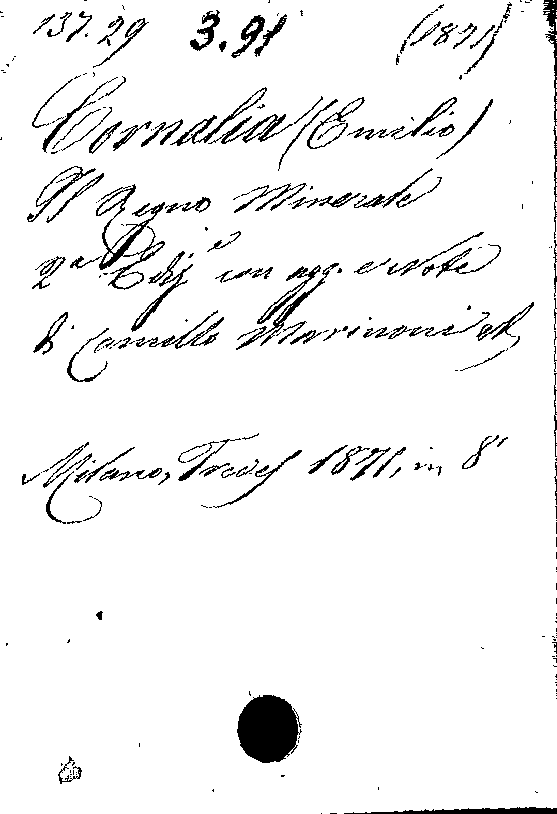 137.29 3.91 (1871)
Cornalia (Emilio)
Il Regno Minerale
2a Edize con agg. e note
di Camillo Marinoni
Milano, Treves 1871, in 8°